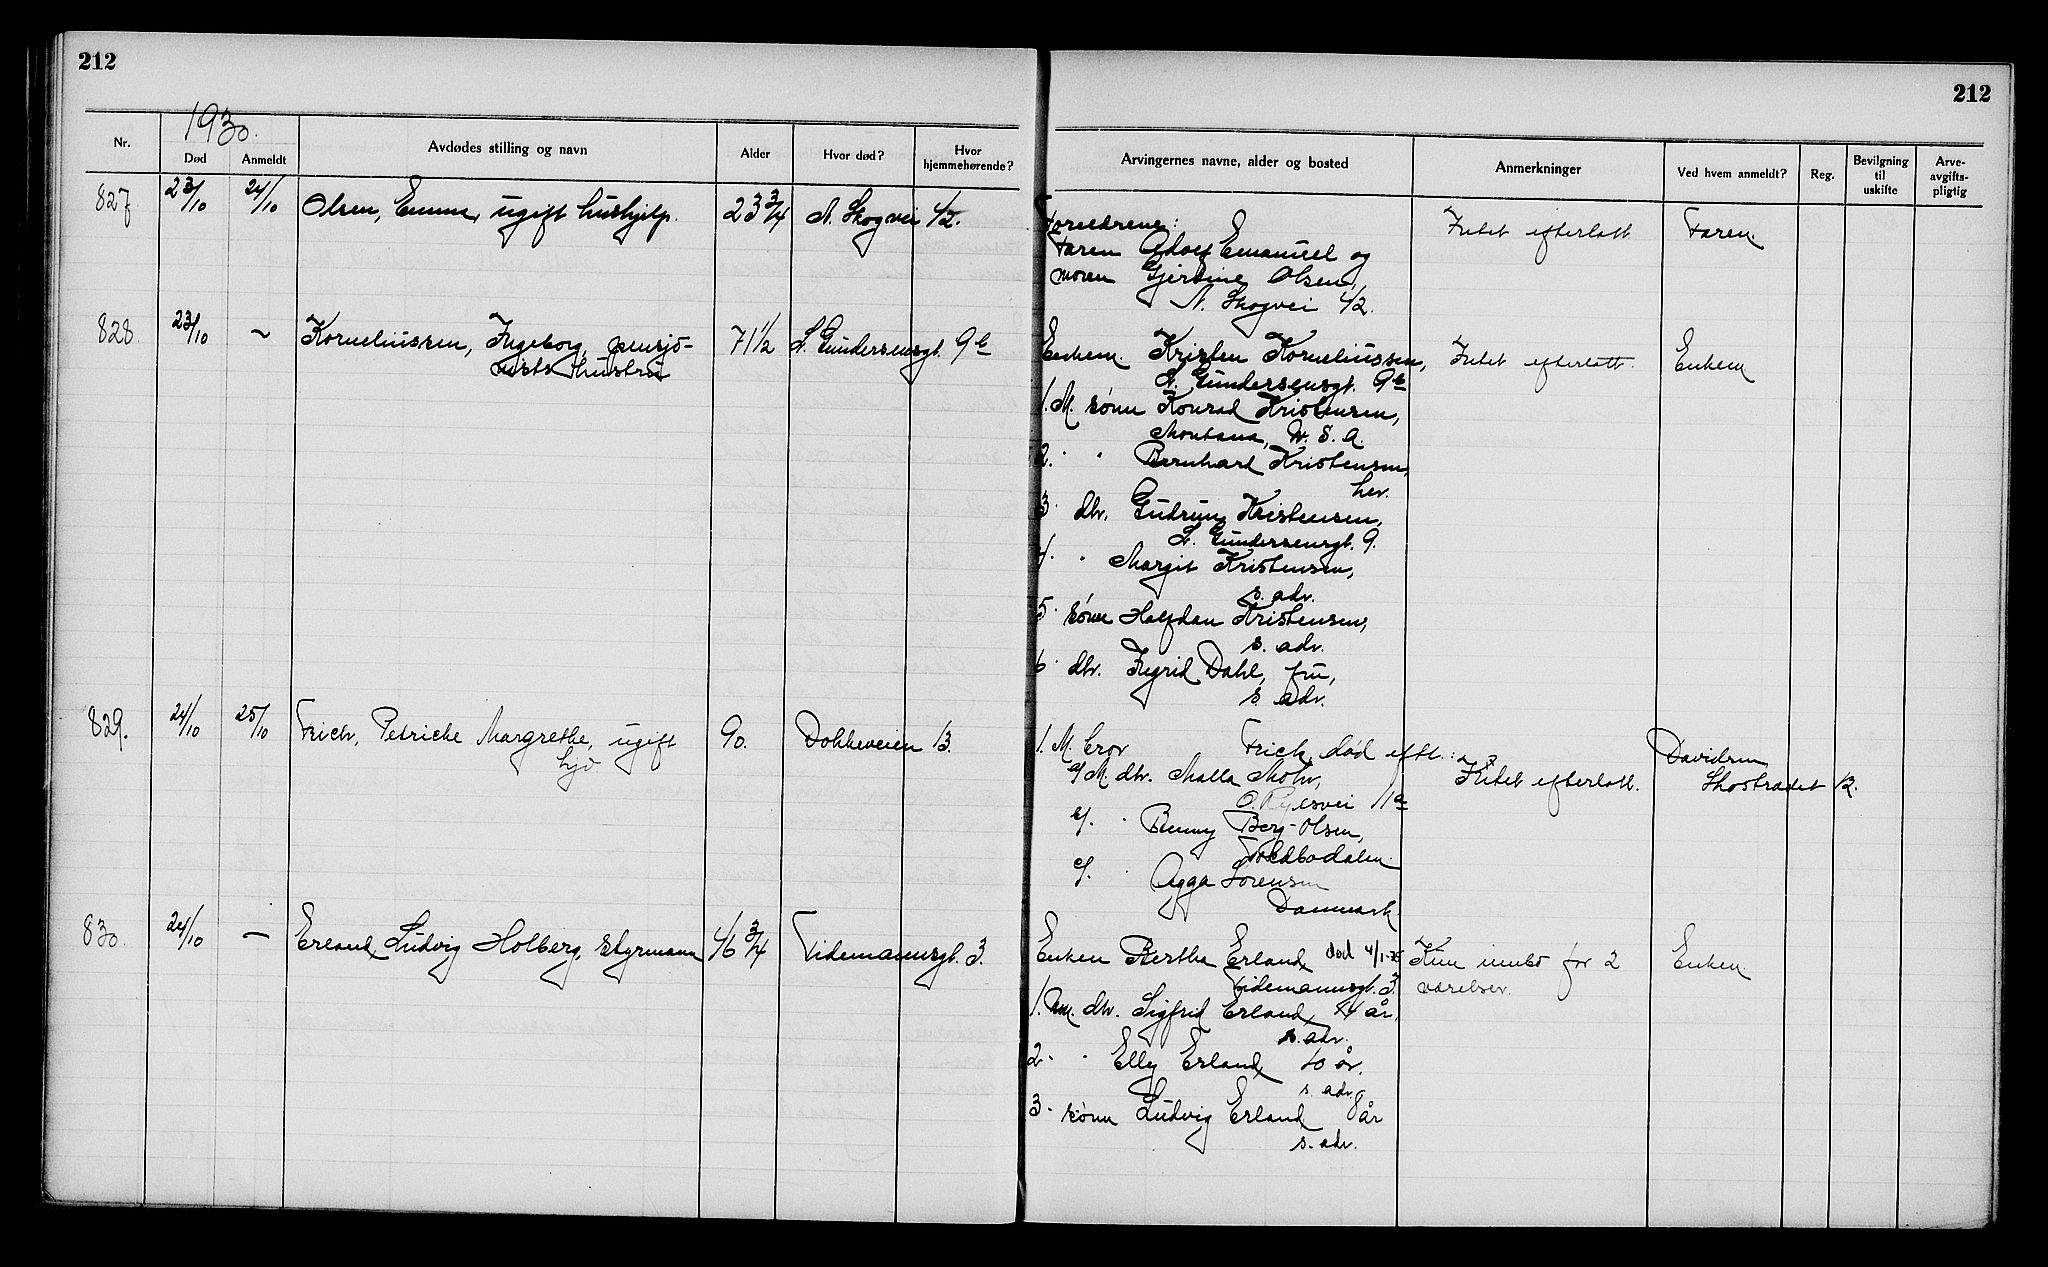 212
212
1930.
Nr.
Død
Anmeldt
Avdødes stilling og navn
Alder
Hvor død?
Hvor hjemmehørende?
Arvingernes navne, alder og bosted
Anmerkninger
Ved hvem anmeldt?
Reg.
Bevilgning til uskifte
Arve-avgifts-pligtig
827. 23/10 24/10 Olsen, Emma, ugift hushjelp. 23 3/4 N. Skogvei 42.
Foreldrene: Intet efterlatt. Faren.
Faren Adolf Emanuel og
moren Gjertine Olsen,
N. Skogvei 42.
828. 23/10 — Korneliussen, Ingeborg, pensjo-
nists hustru
71 1/2 L. Gundersensgt. 9b
Enkem. Kristen Korneliussen, Intet efterlatt. Enkem
L. Gundersensgt. 9b
1. M. sønn Konrad Kristensen,
Montana, U. S. A.
2. " " Bernhard Kristensen,
her.
3. dtr. Gudrun Kristensen,
L. Gundersensgt. 9.
4. " Margit Kristensen,
s. adr.
5. sønn Halfdan Kristensen,
s. adr.
6. dtr. Ingrid Dahl, fru,
s. adr.
829. 24/10 25/10 Frich, Petriche Margrethe, ugift 90. Dokkeveien 13.
1. M. bror Frich, død eftl.:
a/ M. dtr. Malla Mohr, Intet efterlatt. Davidsen
Skostrædet 12.
11a
b/. " Benny Berg-Olsen,
Toldbodalm.
c/. " Agga Sørensen
Danmark.
830. 24/10 — Erland, Ludvig Holberg, styrmann 46 3/4 Tidemannsgt. 3.
Enken Bertha Erland død 4/1-78 Kun innbo for 2 Enken.
Tidemannsgt. 3. værelser.
1. Um. dtr. Sigfrid Erland, 14 år,
s. adr.
2. " Elly Erland, 10 år.
s. adr.
3. sønn Ludvig Erland 8 år
s. adr.